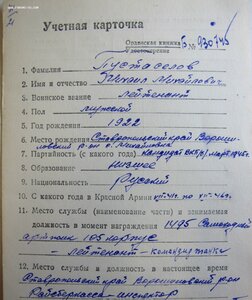 Учетная карточка
Орденская книжка
№ 930745
к удостоверению
1. Фамилия Пустоселов
2. Имя и отчество Михаил Михайлович
3. Воинское звание лейтенант
4. Пол мужской
5. Год рождения 1922
6. Место рождения Ставропольский край Вороши
ловский р-он с. Михайловка
7. Партийность (с какого года) Кандидат ВКП(б) март 1946 г.
8. Образование низшее
9. Национальность русский
10. С какого года в Красной Армии
11. Место службы (наименование части) и занимаемая
должность в момент награждения 1495 Самоходный
арт полк 105 корпус
- лейтенант - командир танка
12. Место службы и должность в настоящее время
Ставропольский край Ворошиловский р-он
инспектор